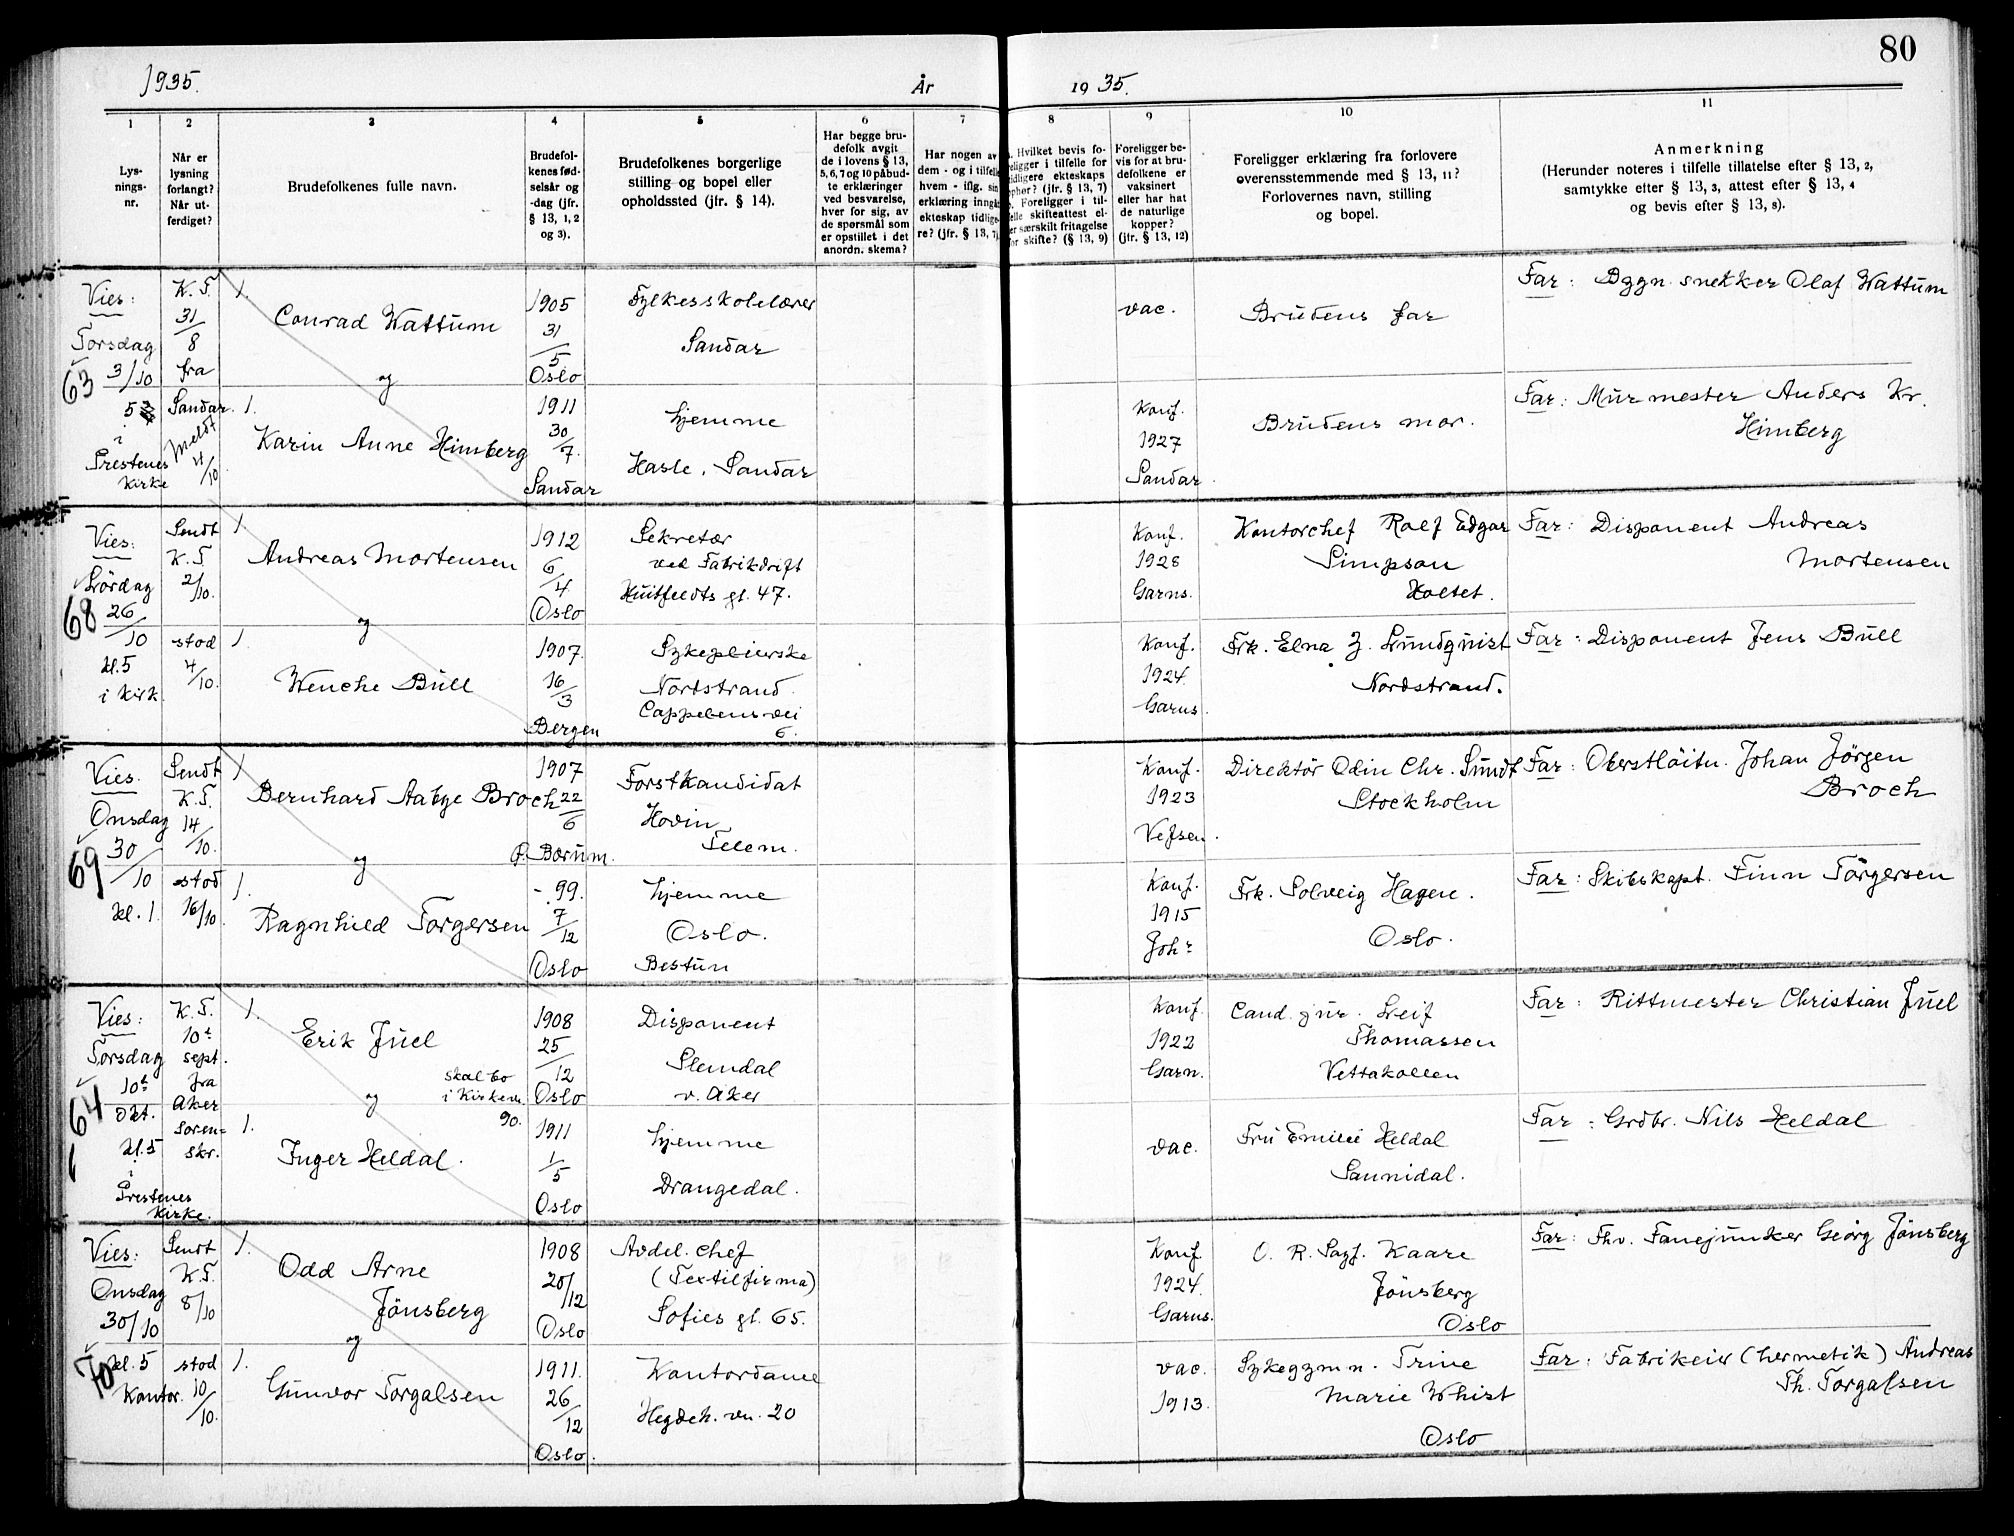 80
1935. År 1935.
1 2 3 4 5 6 7 8 9 10 11
Lys-
nings-
nr.
Når er
lysning
forlangt?
Når ut-
ferdiget?
Brudefolkenes fulle navn.
Brudefol-
kenes fød-
selsår og
-dag (jfr.
§ 13, 1, 2
og 3).
Brudefolkenes borgerlige
stilling og bopel eller
opholdssted (jfr. § 14).
Har begge bru-
defolk avgit
de i lovens § 13,
5, 6, 7 og 10 påbud-
te erklæringer
ved besvarelse,
hver for sig, av
de spørsmål som
er opstillet i det
anordn. skema?
Har nogen av
dem - og i tilfelle
hvem - iflg. sin
erklæring inngåt
ekteskap tidlige-
re? (jfr. § 13, 7)
Hvilket bevis fo-
religger i tilfelle for
tidligere ekteskaps
ophør? (jfr. § 13, 7)
Foreligger i til-
felle skifteattest el-
er særskilt fritagelse
for skifte? (§ 13, 9)
Foreligger be-
vis for at bru-
defolkene er
vaksinert
eller har hat
de naturlige
kopper?
(jfr. § 13, 12)
Foreligger erklæring fra forlovere
overensstemmende med § 13, 11?
Forlovernes navn, stilling
og bopel.
Anmerkning
(Herunder noteres i tilfelle tillatelse efter § 13, 2,
samtykke efter § 13, 3, attest efter § 13, 4
og bevis efter § 13, 8).
63
Vies:
Torsdag
3/10
5
i
Prestenes
Kirke
K. T.
31/8
fra
Sandar.
Meldt
4/10
1. Conrad Wattum
og
1. Karin Anne Himberg
1905
31/5
Oslo
1911
30/7.
Sandar
Fylkesskolelærer
Sandar
hjemme
Hasle, Sandar
vac.
Konf.
1927
Sandar.
Brudens far
Brudens mor.
Far: Bygn. snekker Olaf Wattum
Far: Murmester Anders Kr.
Himberg
68
Vies:
Lördag
26/10
kl. 5
i kirk.
Sendt
K. T.
2/10.
stod
4/10.
1. Andreas Mortensen
og
1. Wenche Bull
1912
6/4
Oslo
1907.
16/3
Bergen
Sekretær
ved Fabrikdrift
Huitfeldts gt. 47.
Sykepleierske
Nordstrand.
Cappelens vei
6.
Konf.
1928
Garns.
Konf.
1924.
Garns.
Kontorchef Rolf Edgar
Simpson
Holtet.
Frk. Elna J. Lundquist
Nordstrand.
Far: Disponent Andreas
Mortensen
Far: Disponent Jens Bull
69
Vies.
Onsdag
30/10
kl. 1.
Sendt
K. T.
14/10.
stod
16/10.
1. Bernhard Aabye Broch
og
1. Ragnhild Torgersen
1907
22/6
P. Bærum.
- 99.
7/12
Oslo
Forstkandidat
Hovin
Telem.
hjemme
Oslo.
Bestun
Konf.
1923
Vefsen.
Konf.
1915
Joh.
Direktör Odin Chr. Sundt
Stockholm
Frk. Solveig Hagen.
Oslo.
Far: Oberstlöitn. Johan Jörgen
Broch
Far: Skibskapt. Finn Törgersen
64
Vies:
Torsdag
10t
Okt.
kl. 5
i
Prestenes
Kirke.
K. T.
10t
sept.
fra
Aker
Soren-
skr.
1. Erik Juel
skal bo
i Kirkev.
90.
og
1. Inger Heldal.
1908
25/12
Oslo
1911
1/5
Oslo
Disponent
Slemdal
v. Aker
hjemme
Drangedal.
Konf.
1922
Garn.
vac.
Cand. jur. Leif
Thomassen
Vettakollen
Fru Emilie Heldal
Sannidal.
Far: Rittmester Christian Juel
Far: Grdbr. Nils Heldal
70
Vies:
Onsdag
30/10
kl. 5
Kontor.
Sendt
K. T.
8/10
stod
10/10.
1. Odd Arne
Jönsberg
og
1. Gunvor Torgalsen
1908
20/12
Oslo
1911.
26/12
Oslo.
Avdel. chef
(Textilfirma)
Sofies gt. 65.
Kontordame
Hegdeh. vn. 20
Konf
1924.
Garns.
vac.
1913.
O. R. Sagf. Kaare
Jönsberg
Oslo
Sykegymn. Trine
Marie Whist
Oslo
Far: Fhv. Fanejunker Georg Jönsberg
Far: Fabrikeier (hermetik) Andreas
Th. Torgalsen